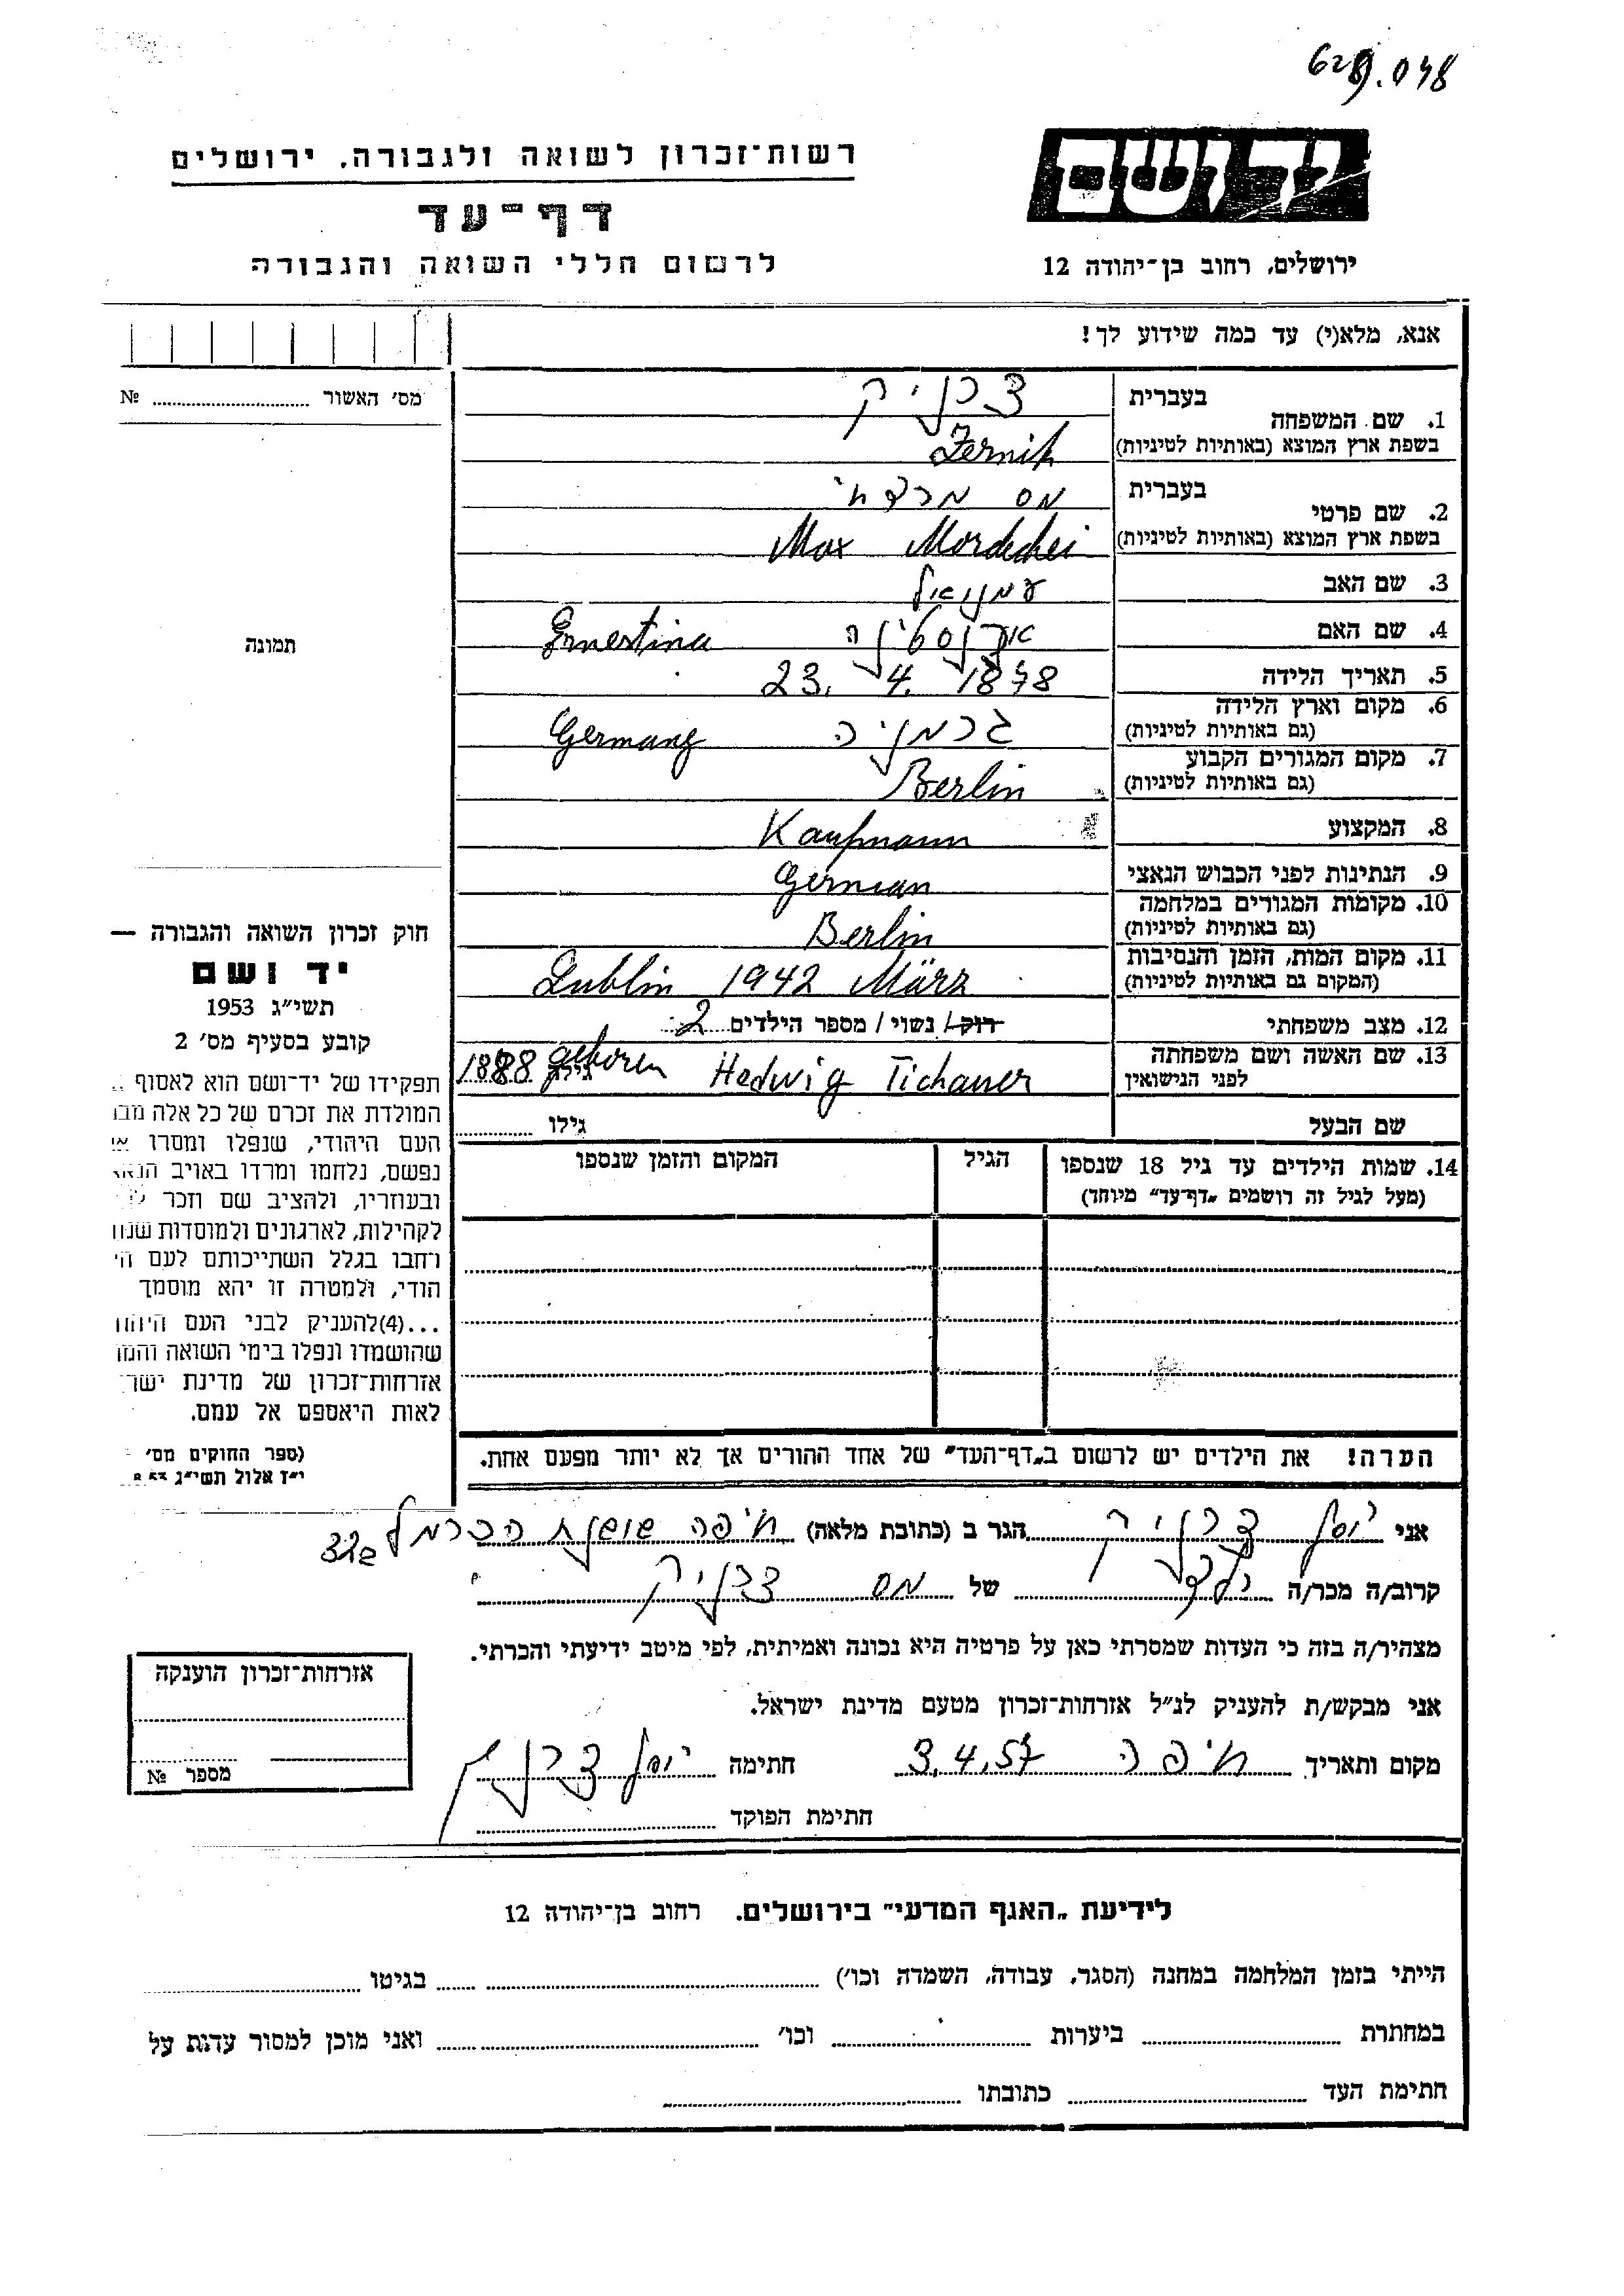 628.048
רשות־זכרון לשואה ולגבורה. ירושלים
יד ושם
דף־עד
לרשום חללי השואה והגבורה
ירושלים, רחוב בן־יהודה 12
אנא, מלא(י) עד כמה שידוע לך!
מס׳ האשור ........ №
1. שם המשפחה
בעברית צרניק
בשפת ארץ המוצא (באותיות לטיניות) Zernik
2. שם פרטי
בעברית מס מרדכי
בשפת ארץ המוצא (באותיות לטיניות) Max Mordechei
3. שם האב עמנואל
4. שם האם ארנסטינה Ernestina
תמונה
5. תאריך הלידה 23. 4. 1878
6. מקום וארץ הלידה (גם באותיות לטיניות) גרמניה Germany
7. מקום המגורים הקבוע (גם באותיות לטיניות) Berlin
8. המקצוע Kaufmann
9. הנתינות לפני הכבוש הנאצי German
10. מקומות המגורים במלחמה (גם באותיות לטיניות) Berlin
11. מקום המות, הזמן והנסיבות (המקום גם באותיות לטיניות) Lublin 1942 März
12. מצב משפחתי רוק/ נשוי / מספר הילדים 2
13. שם האשה ושם משפחתה לפני הנישואין Hedwig Tichauer גילה geboren 1888
שם הבעל גילו
14. שמות הילדים עד גיל 18 שנספו הגיל המקום והזמן שנספו
(מעל לגיל זה רושמים „דף־עד״ מיוחד)
חוק זכרון השואה והגבורה —
יד ושם
תשי״ג 1953
קובע בסעיף מס׳ 2
תפקידו של יד־ושם הוא לאסוף
המולדת את זכרם של כל אלה
העם היהודי, שנפלו ומסרו
נפשם, נלחמו ומרדו באויב
ובעוזריו, ולהציב שם וזכר
לקהילות, לארגונים ולמוסדות
וחבו בגלל השתייכותם לעם
הודי, ולמטרה זו יהא מוסמך
...(4)להעניק לבני העם
שהושמדו ונפלו בימי השואה
אזרחות־זכרון של מדינת
לאות היאספם אל עמם.
(ספר החוקים מס׳
י״ז אלול תשי״ג
הערה! את הילדים יש לרשום ב„דף־העד״ של אחד ההורים אך לא יותר מפעם אחת.
אני יוסף צרניק הגר ב (כתובת מלאה) חיפה שושנת הכרמל
קרוב/ה מכר/ה ילד של מס צרניק
מצהיר/ה בזה כי העדות שמסרתי כאן על פרטיה היא נכונה ואמיתית, לפי מיטב ידיעתי והכרתי.
אני מבקש/ת להעניק לנ״ל אזרחות־זכרון מטעם מדינת ישראל.
מקום ותאריך חיפה 3.4.57 חתימה יוסף צרניק
חתימת הפוקד
אזרחות־זכרון הוענקה
מספר №
לידיעת „האגף המדעי״ בירושלים. רחוב בן־יהודה 12
הייתי בזמן המלחמה במחנה (הסגר, עבודה, השמדה וכו׳) בגיטו
במחתרת ביערות וכו׳ ואני מוכן למסור עדות על
חתימת העד כתובתו